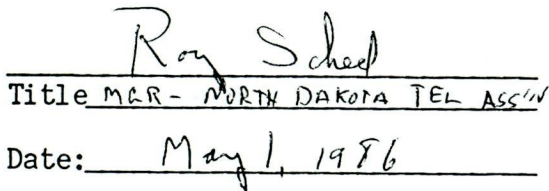 Roy Scheel
Title MGR - NORTH DAKOTA TEL ASS'N
Date: May 1, 1986